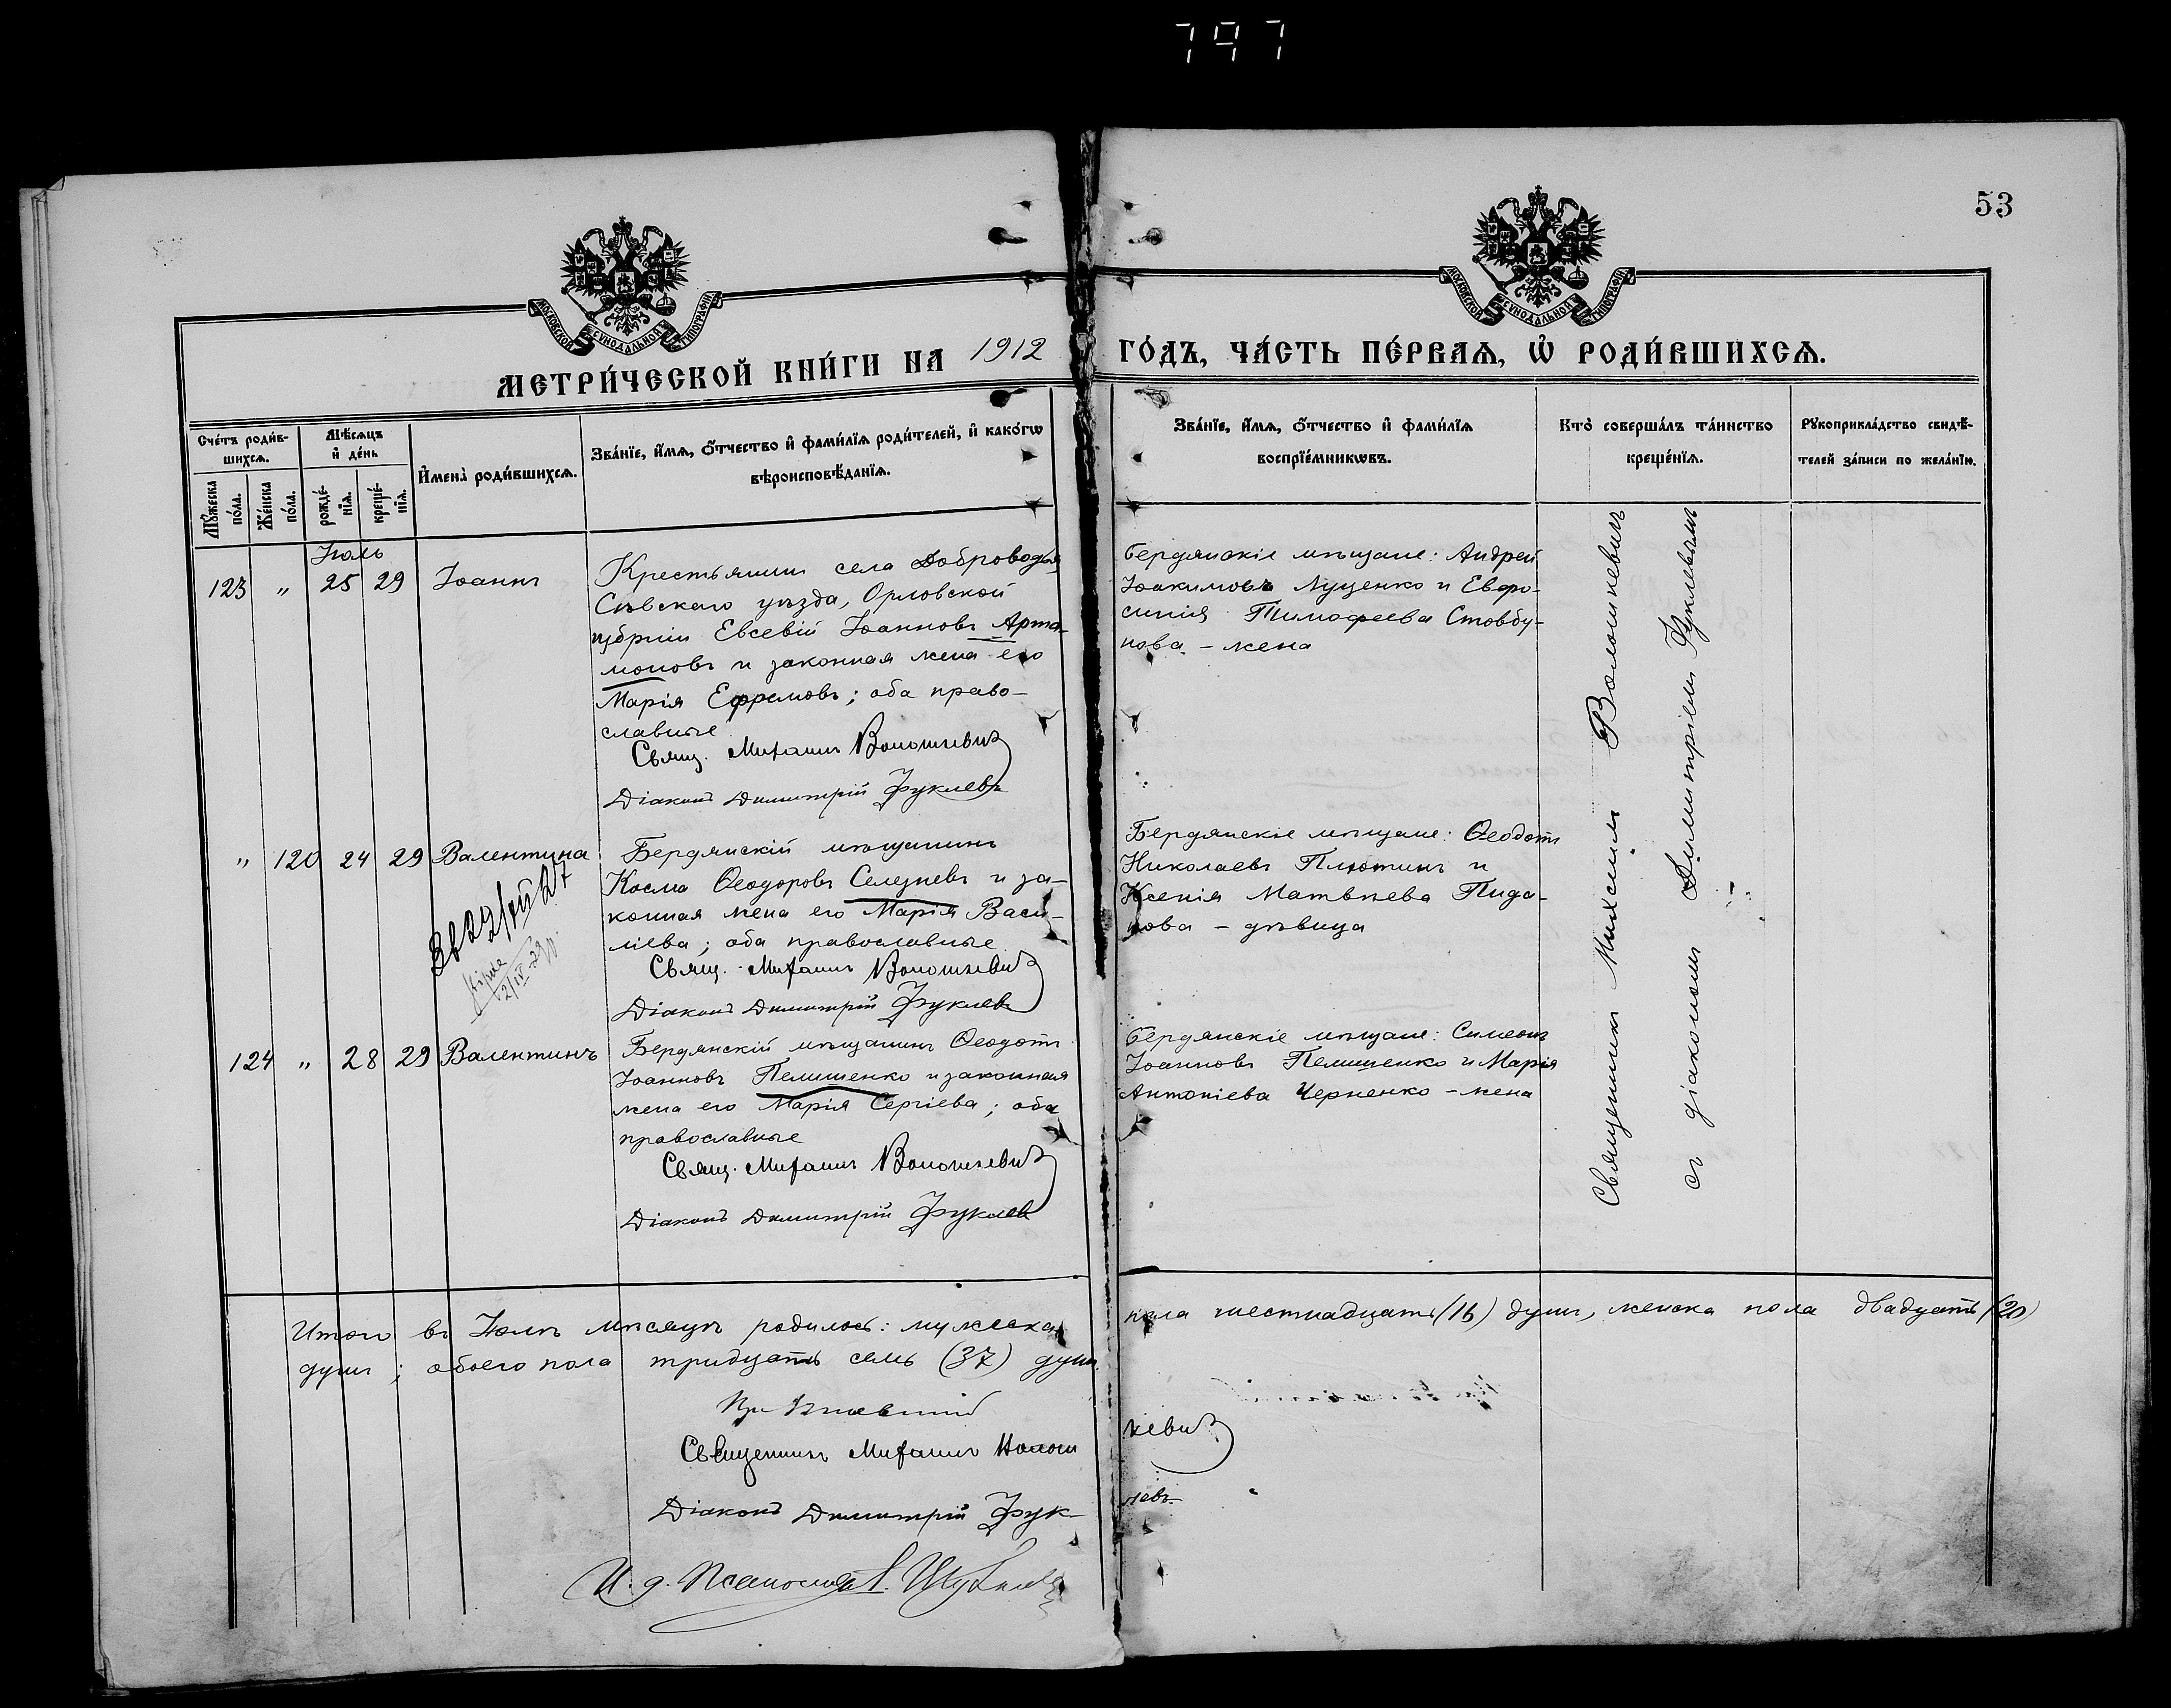 797
53
МОСКОВСКОЙ СѴНОДАЛЬНОЙ ТИПОГРАФІИ
МОСКОВСКОЙ СѴНОДАЛЬНОЙ ТИПОГРАФІИ
МЕТРИ́ЧЕСКОЙ КНИ́ГИ НА 1912
ГО́ДЪ, ЧА́СТЬ ПЕ́РВАѦ, Ѽ РОДИ́ВШИХСѦ.
Сче́тъ роди́в-
шихсѧ.
Мꙋ́жеска по́ла.
Же́нска по́ла.
Мѣ́сѧцъ
и҆ де́нь
рожде́-
нїѧ.
креще́-
нїѧ.
И҆мена̀ роди́вшихсѧ.
Зва́нїе, и҆́мѧ, ѻ҆́тчество и҆ фами́лїѧ роди́телей, и҆ како́гѡ
вѣроисповѣ́данїѧ.
Зва́нїе, и҆́мѧ, ѻ҆́тчество и҆ фами́лїѧ
воспрїе́мникѡвъ.
Кто̀ соверша́лъ та́инство
креще́нїѧ.
Рꙋкоприкла́дство свидѣ́-
телей за́писи по жела́нїю.
Іюль
123 " 25 29 Іоаннъ
Крестьянинъ села Доброводья
Сѣвскаго уѣзда, Орловской
губрніи Евсевій Іоанновъ Арта-
моновъ и законная жена его
Марія Ефремовъ; оба право-
славные
Свящ. Михаилъ Волошкевичъ
Діаконъ Димитрій Фуклевъ
Бердянскіе мѣщане: Андрей
Іоакимовъ Луценко и Евфро-
синія Тимофеева Стовбу-
нова - жена
" 120 24 29 Валентина
Бердянскій мѣщанинъ
Косма Ѳеодоровъ Селезневъ и за-
конная жена его Марія Васи-
ліева; оба православные
Свящ. Михаилъ Волошкевичъ
Діаконъ Димитрій Фуклевъ
Бердянскіе мѣщане: Ѳеодотъ
Николаевъ Плютинъ и
Ксенія Матвѣева Пида-
нова - дѣвица
124 " 28 29 Валентинъ
Бердянскій мѣщанинъ Ѳеодотъ
Іоанновъ Пелишенко и законная
жена его Марія Сергіева; оба
православные
Свящ. Михаилъ Волошкевичъ
Діаконъ Димитрій Фуклевъ
Бердянскіе мѣщане: Симеонъ
Іоанновъ Пелишенко и Марія
Антоніева Черненко - жена
Священникъ Михаилъ Волошкевичъ
съ діакономъ Димитріемъ Фуклевымъ
Итого въ Іюлѣ мѣсяцѣ родилось: мужеска пола шестнадцать (16) душъ, женска пола двадцать (20)
душъ; обоего пола тридцать семь (37) душъ.
Священникъ Михаилъ Волошкевичъ
Діаконъ Димитрій Фуклевъ
И. д. Псаломщ.